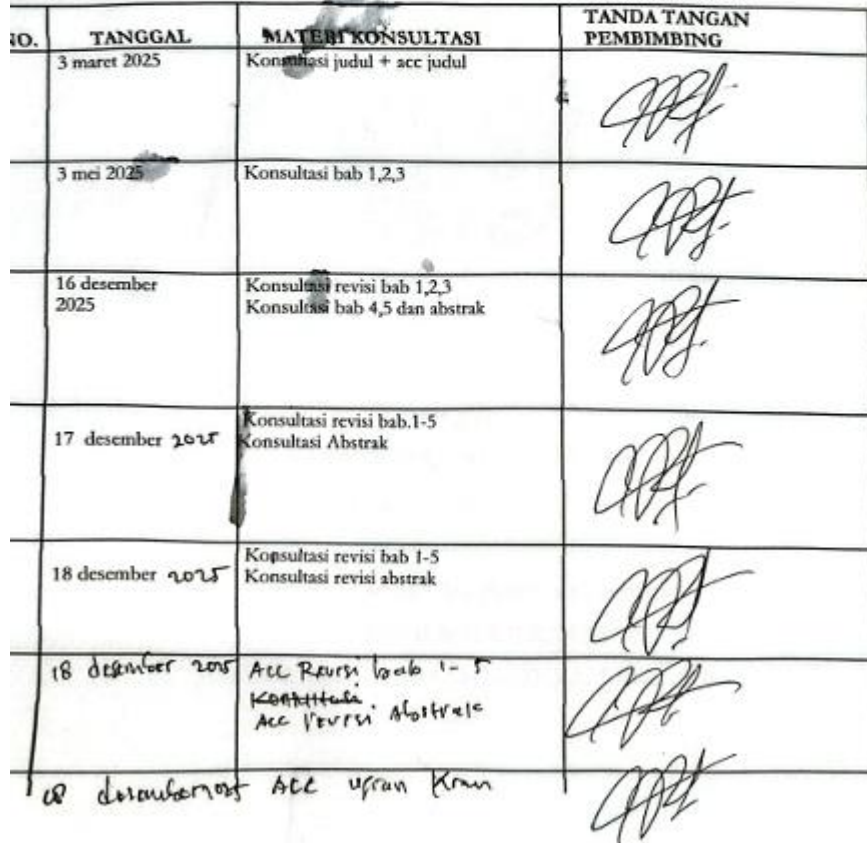 NO. TANGGAL MATERI KONSULTASI TANDA TANGAN PEMBIMBING
3 maret 2025 Konsultasi judul + acc judul
3 mei 2025 Konsultasi bab 1,2,3
16 desember 2025 Konsultasi revisi bab 1,2,3
Konsultasi bab 4,5 dan abstrak
17 desember 2025 Konsultasi revisi bab.1-5
Konsultasi Abstrak
18 desember 2025 Konsultasi revisi bab 1-5
Konsultasi revisi abstrak
18 desember ACC Revisi bab 1-5
Konsultasi
Acc revisi Abstrak
ACC